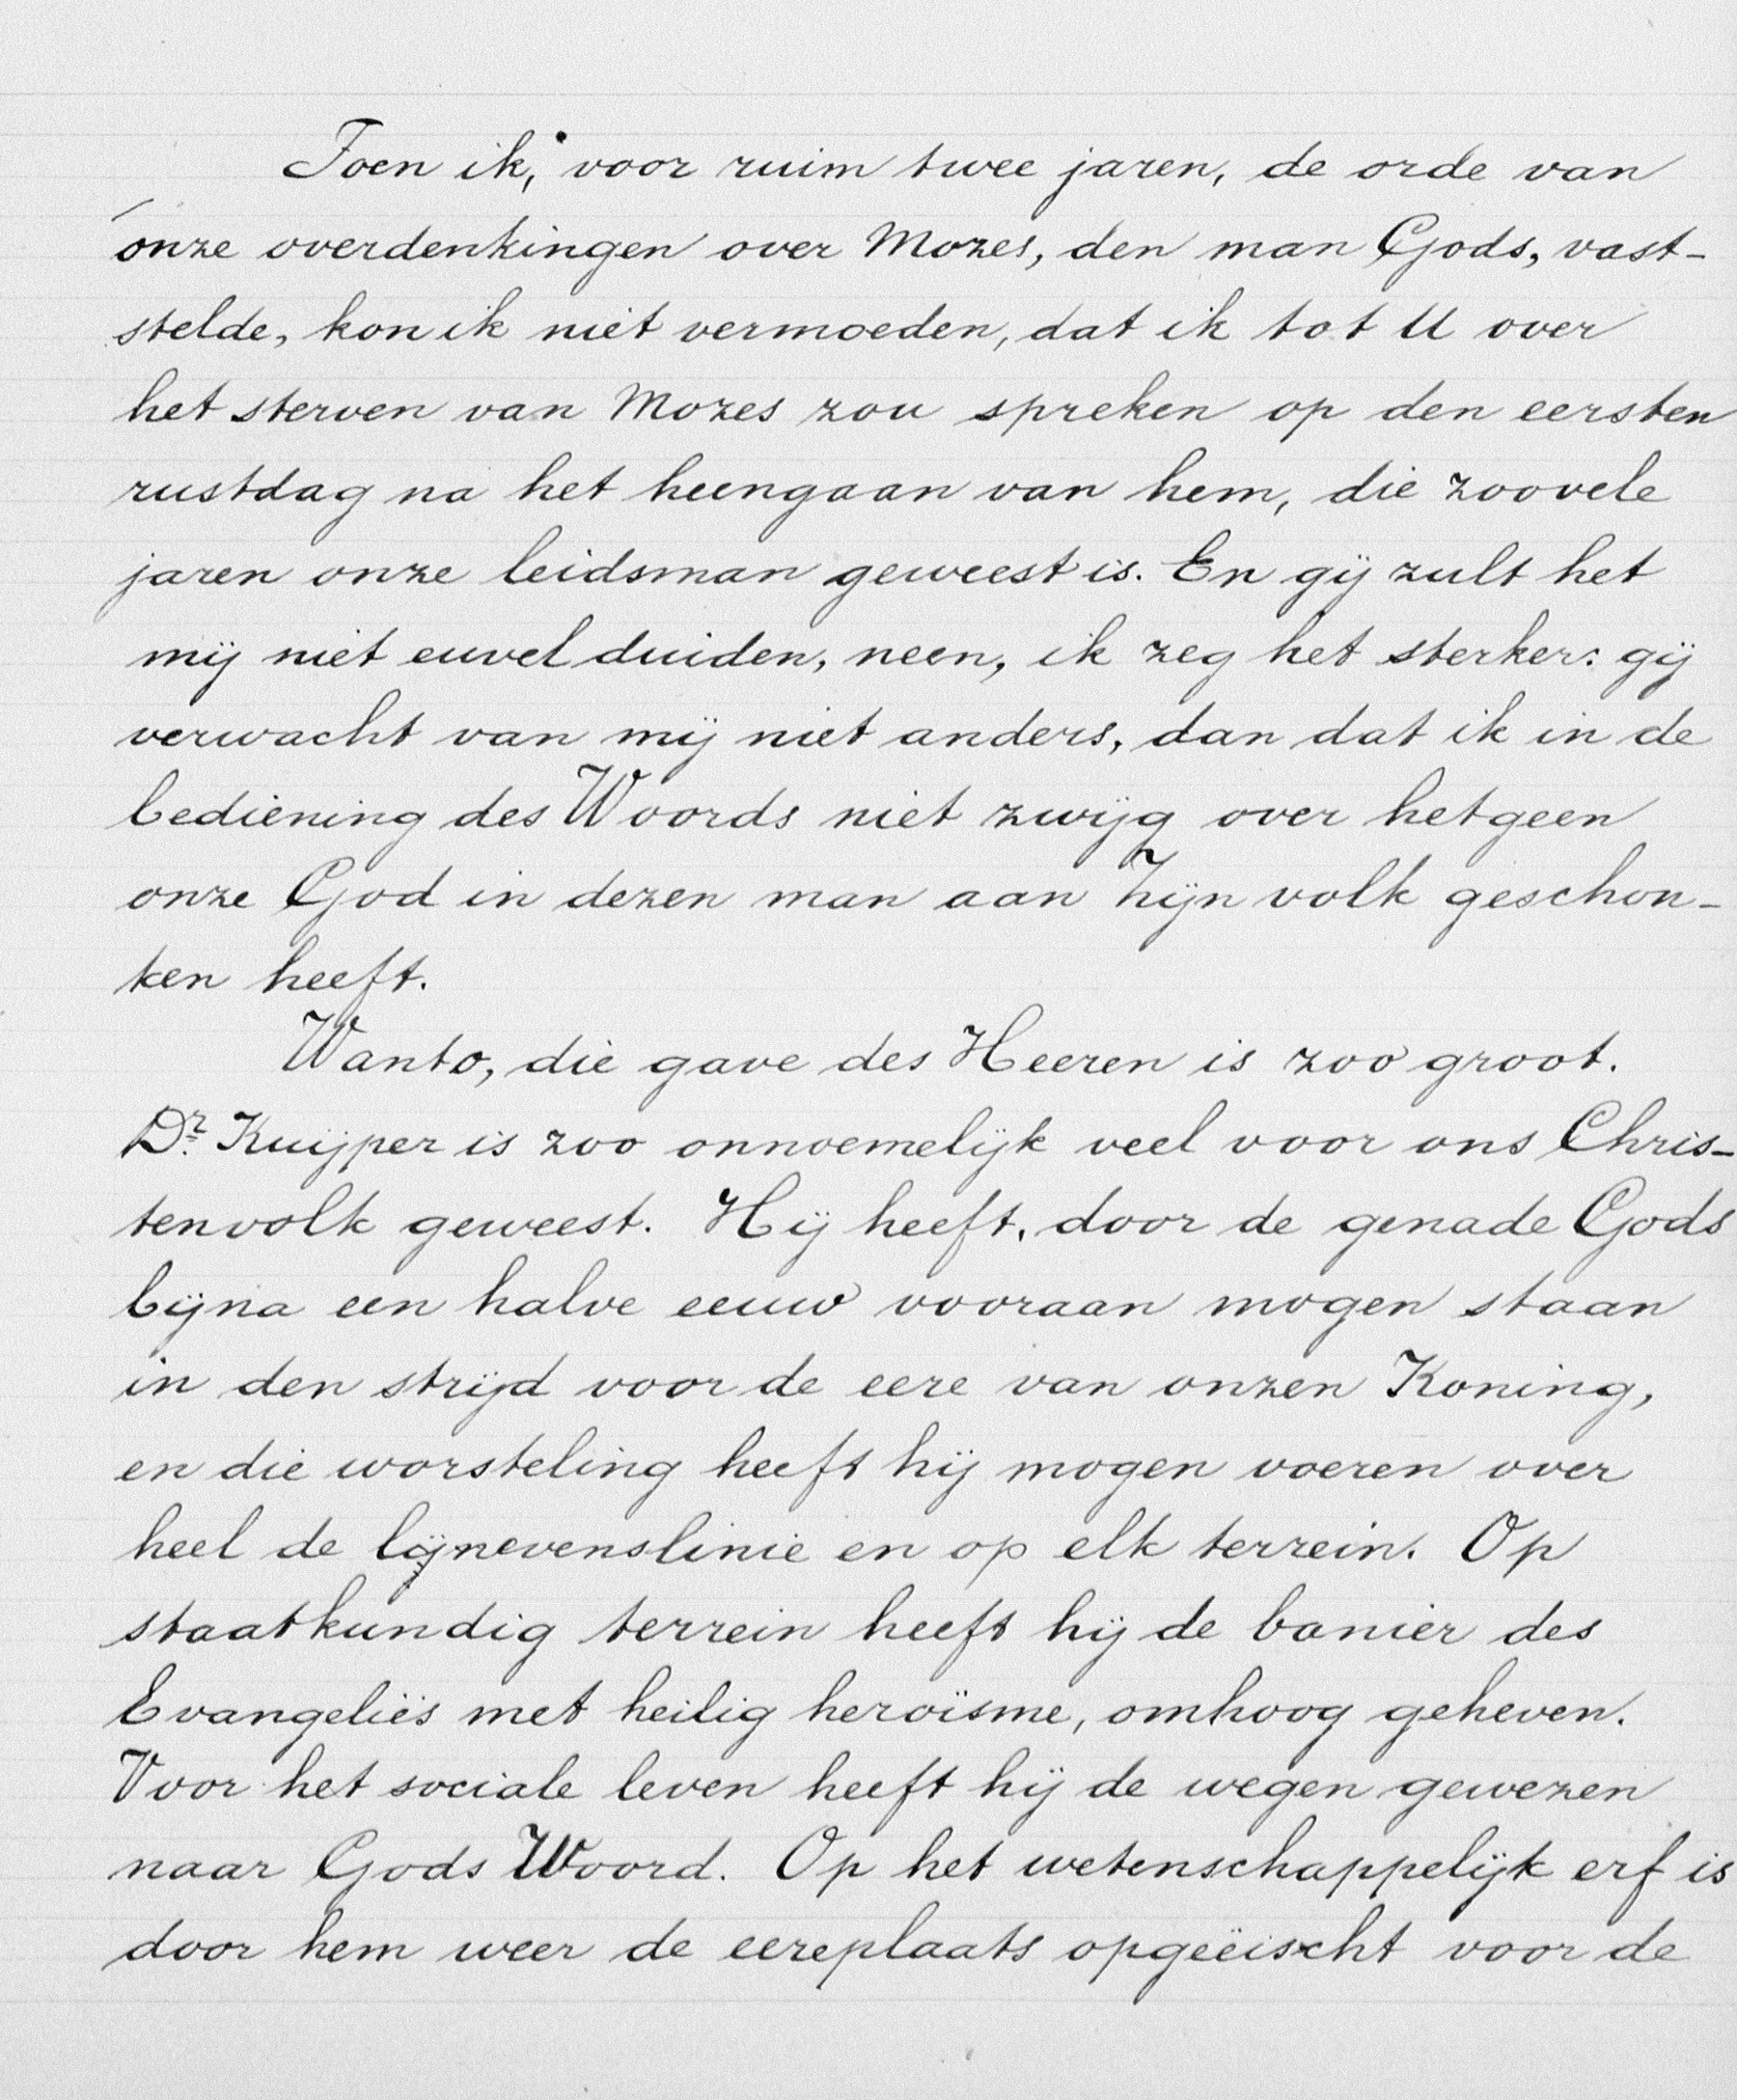 Toen ik, voor ruim twee jaren, de orde van
onze overdenkingen over Mozes, den man Gods, vast-
stelde, kon ik niet vermoeden, dat ik tot U over
het sterven van Mozes zou spreken op den eersten
rustdag na het heengaan van hem, die zoovele
jaren onze leidsman geweest is. En gij zult het
mij niet euvel duiden, neen, ik zeg het sterker: gij
verwacht van mij niet anders, dan dat ik in de
bediening des Woords niet zwijg over hetgeen
onze God in dezen man aan Zijn volk geschon-
ken heeft.
Want o, die gave des Heeren is zoo groot.
Dr. Kuijper is zoo onnoemelijk veel voor ons Chris-
tenvolk geweest. Hij heeft, door de genade Gods
bijna een halve eeuw vooraan mogen staan
in den strijd voor de eere van onzen Koning,
en die worsteling heeft hij mogen voeren over
heel de lijnevenslinie en op elk terrein. Op
staatkundig terrein heeft hij de banier des
Evangeliës met heilig heroïsme, omhoog geheven.
Voor het sociale leven heeft hij de wegen gewezen
naar Gods Woord. Op het wetenschappelijk erf is
door hem weer de eereplaats opgeëischt voor de